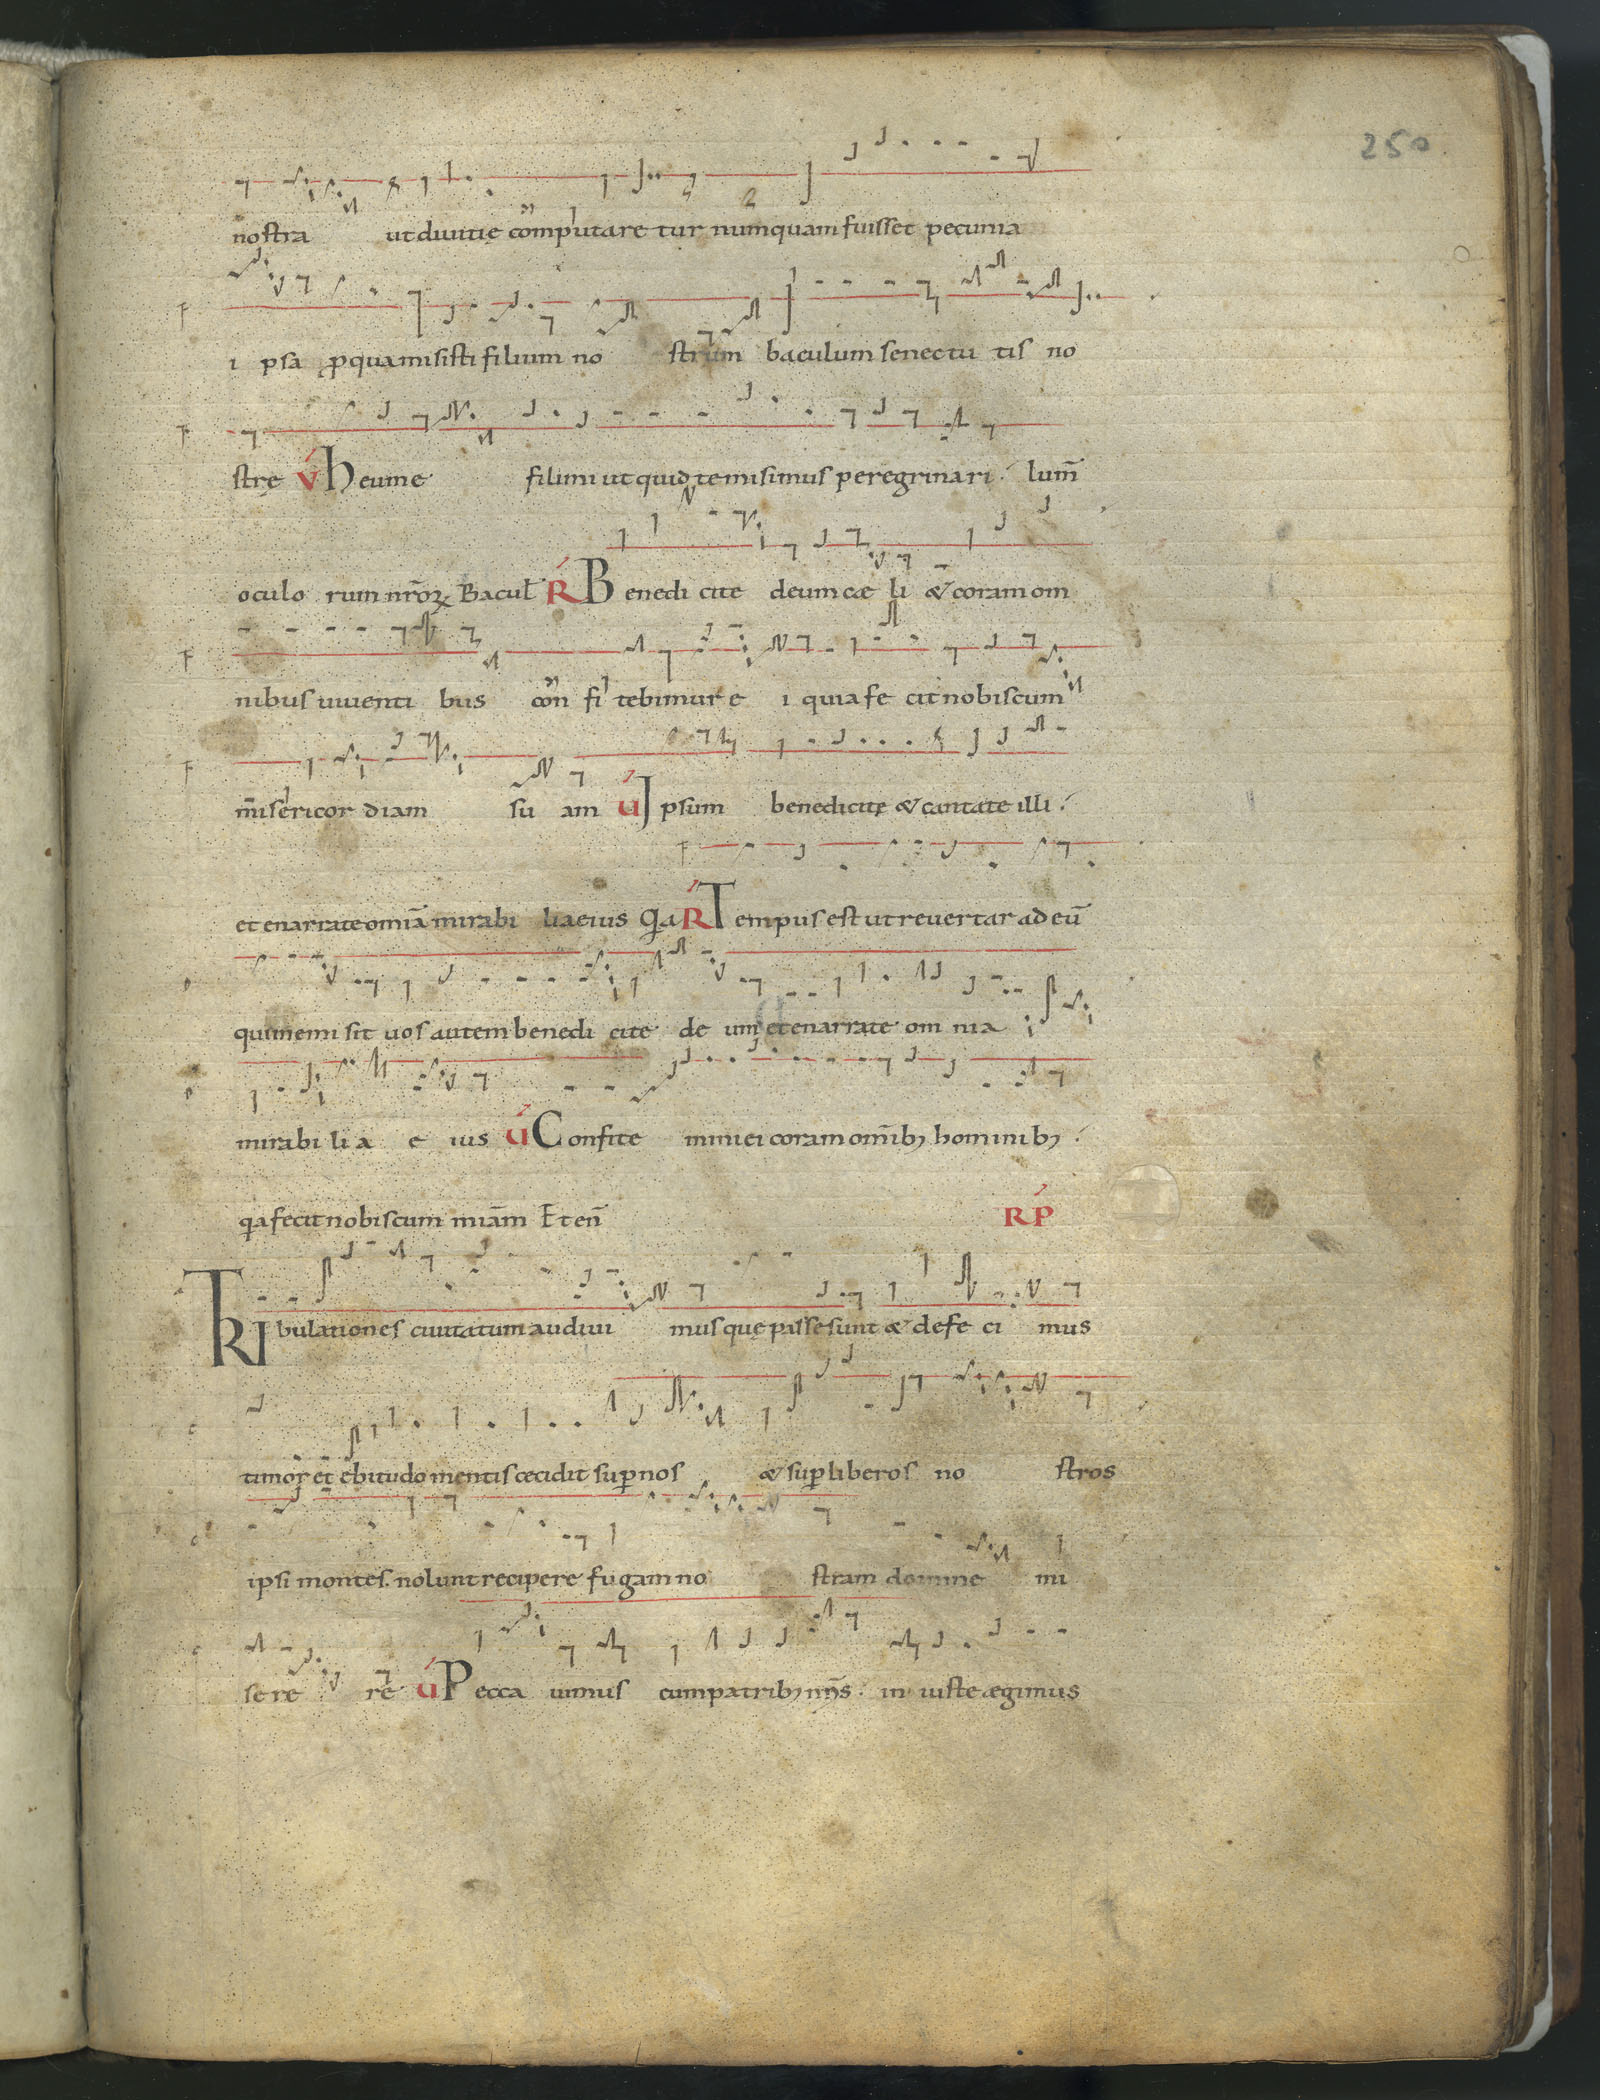 250
nostra ut diuitię computare tur numquam fuisset pecunia
i psa ꝓ qua misisti filium no strum baculum senectu tis no
strę V̓ heu me filium ut quid te misimus peregrinari lum̄
oculo rum nr̄oꝝ Bacul̄ R̓ Benedi cite deum cæ li & coram om
nibus uiuenti bus con fi tebimur e i quia fe cit nobiscum
misericor diam su am V̓ Ipsum benedicite & cantate illi
et enarrate omīa mirabi lia eius Qa R̓ Tempus est ut reuertar ad eū
qui me mi sit uos autem benedi cite de um et enarrate om nia
mirabi li a e ius V̓ Confite mini ei coram om̄ibꝫ hominibꝫ
qa fecit nobiscum miām Et en̄
R̓P
TRIbulationes ciuitatum audiui mus quę passe sunt & defe ci mus
timor et ebitudo mentis cecidit suꝑ nos & suꝑ liberos no stros
ipsi montes nolunt recipere fugam no stram domine mi
se re re V̓ Pecca uimus cum patribꝫ nr̄s in iuste ægimus